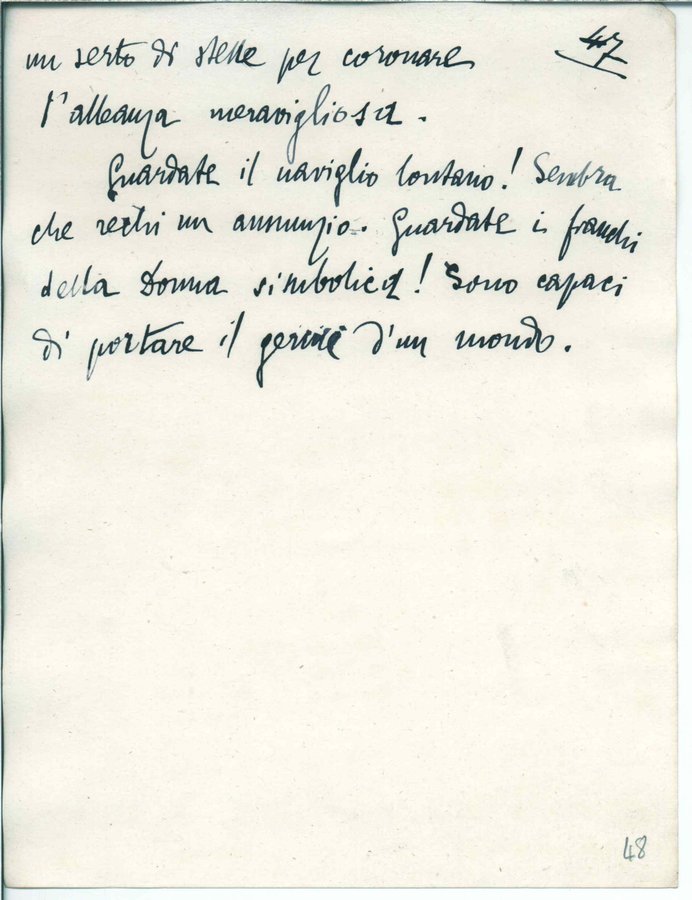 47
un serto di stelle per coronare
l'alleanza meravigliosa.
Guardate il naviglio lontano! Sembra
che rechi un annunzio. Guardate i fianchi
della Donna simbolica! Sono capaci
di portare il germe d'un mondo.
48